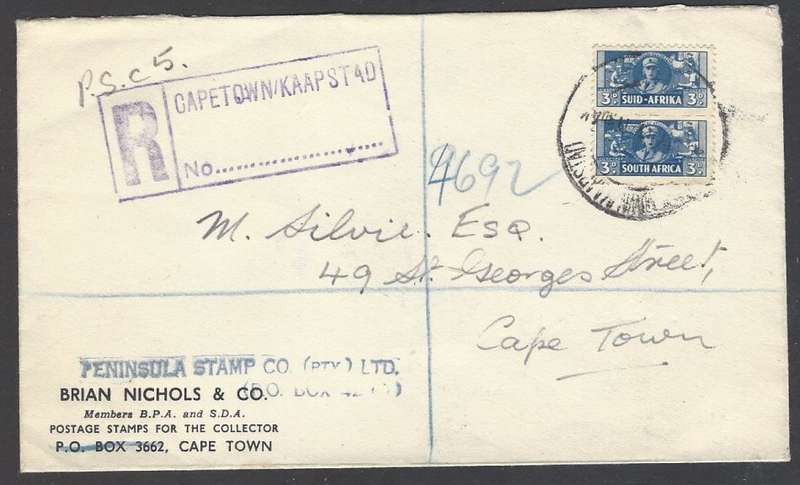 P.S.C 5.
R CAPETOWN/KAAPSTAD
No.
3D SUID-AFRIKA 3D
3D SOUTH AFRICA 3D
4692
M. Silvie. ESQ.
49 St. Georges Street,
Cape Town
PENINSULA STAMP CO. (PTY) LTD.
(P.O. BOX
BRIAN NICHOLS & CO.
Members B.P.A. and S.D.A.
POSTAGE STAMPS FOR THE COLLECTOR
P.O. BOX 3662, CAPE TOWN